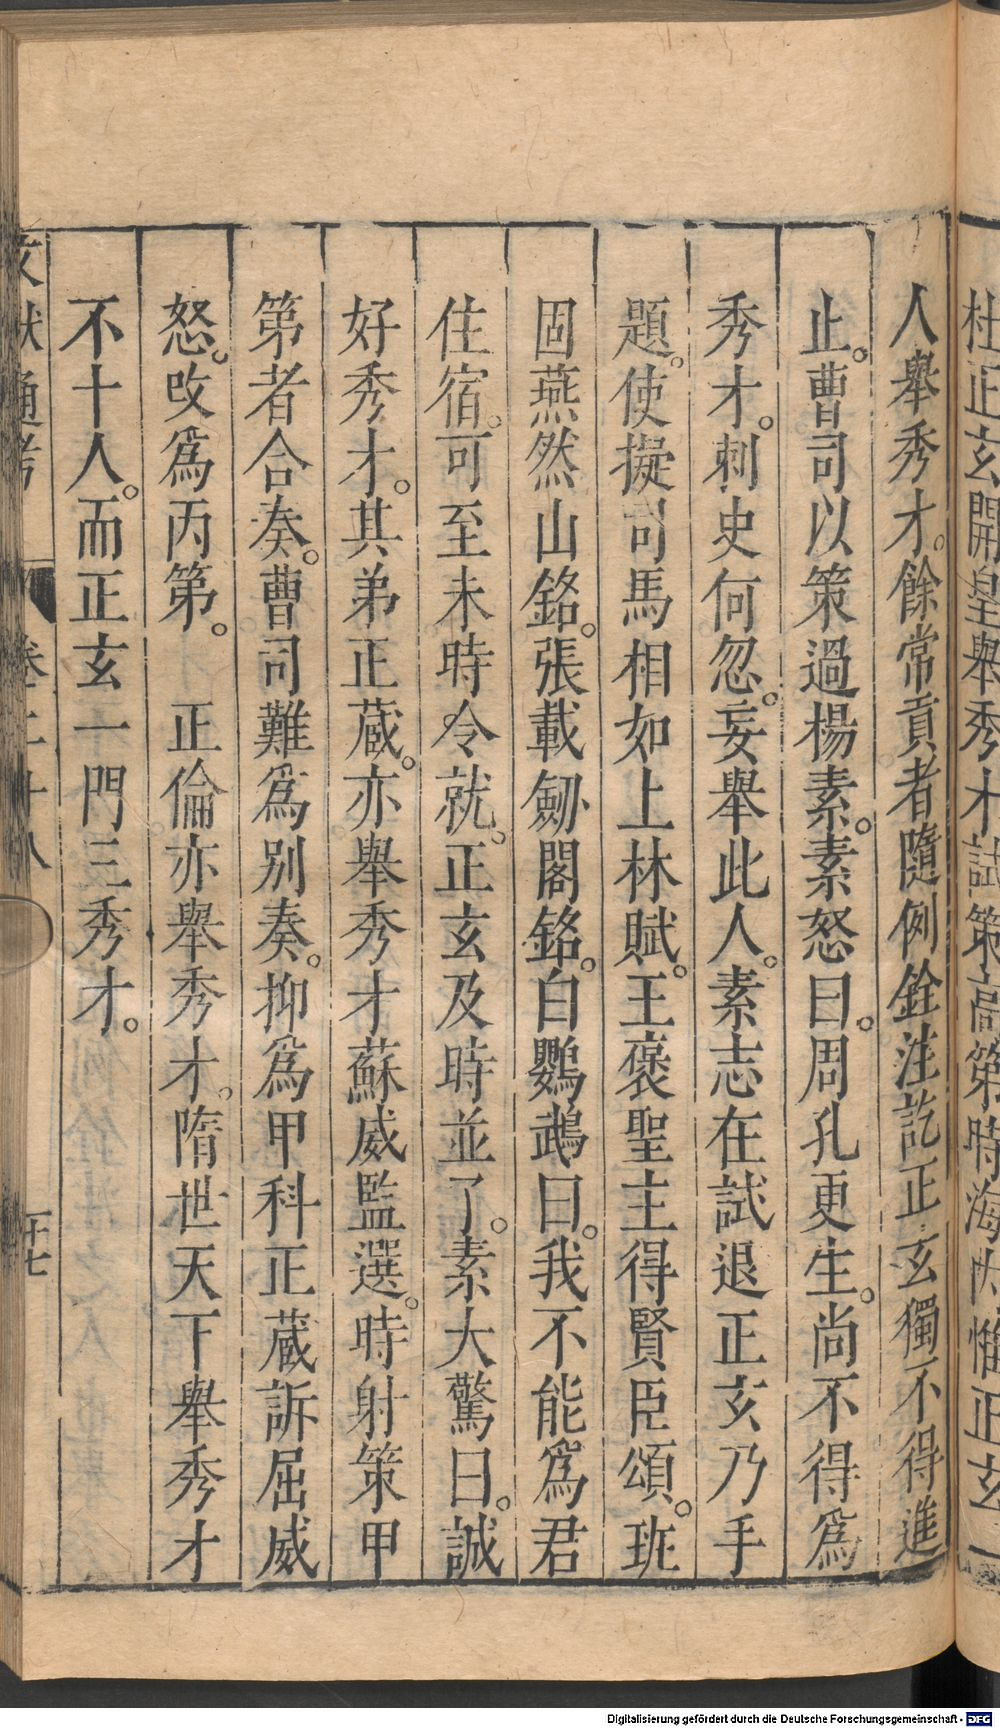 杜正玄開皇舉秀才試策高第時海內惟正玄一
人舉秀才。餘常貢者隨例銓注訖正玄獨不得進
止。曹司以策過楊素。素怒曰。周孔更生。尚不得爲
秀才。刺史何忽。妄舉此人。素志在試退正玄乃手
題。使擬司馬相如上林賦。王褒聖主得賢臣頌。班
固燕然山銘。張載劒閣銘。白鸚鵡曰。我不能爲君
住宿。可至未時令就。正玄及時並了。素大驚曰。誠
好秀才。其弟正蔵。亦舉秀才蘇威監選。時射策甲
第者合奏。曹司難爲別奏。抑爲甲科正蔵訴屈威
怒。改爲丙第。正倫亦舉秀才。隋世天下舉秀才
不十人。而正玄一門三秀才。
文獻通考 卷二十八 十七
Digitalisierung gefördert durch die Deutsche Forschungsgemeinschaft - DFG